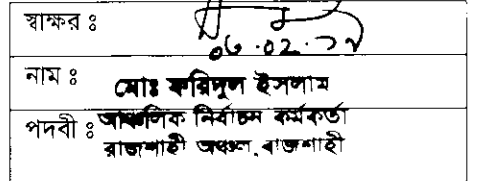 স্বাক্ষর ঃ
নাম ঃ মোঃ ফরিদুল ইসলাম
পদবী ঃ আঞ্চলিক নির্বাচন কর্মকর্তা
রাজশাহী অঞ্চল, রাজশাহী